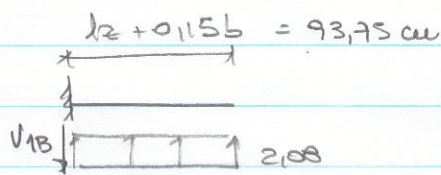 lz + 0,15b = 93,75 cm
V1B
2,08